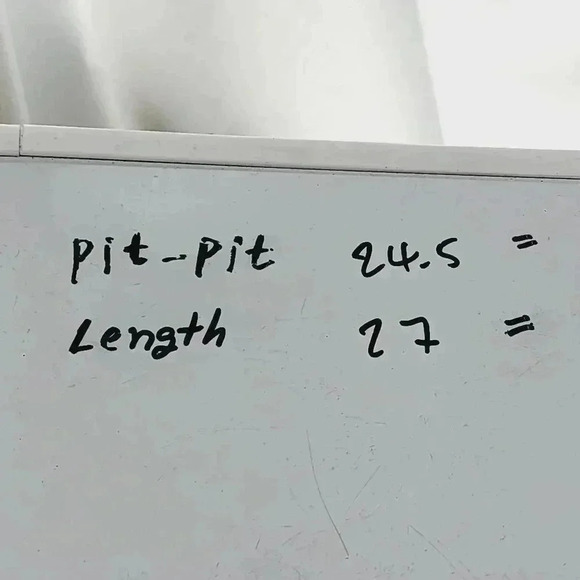 Pit-Pit 24.5 "
Length 27 "